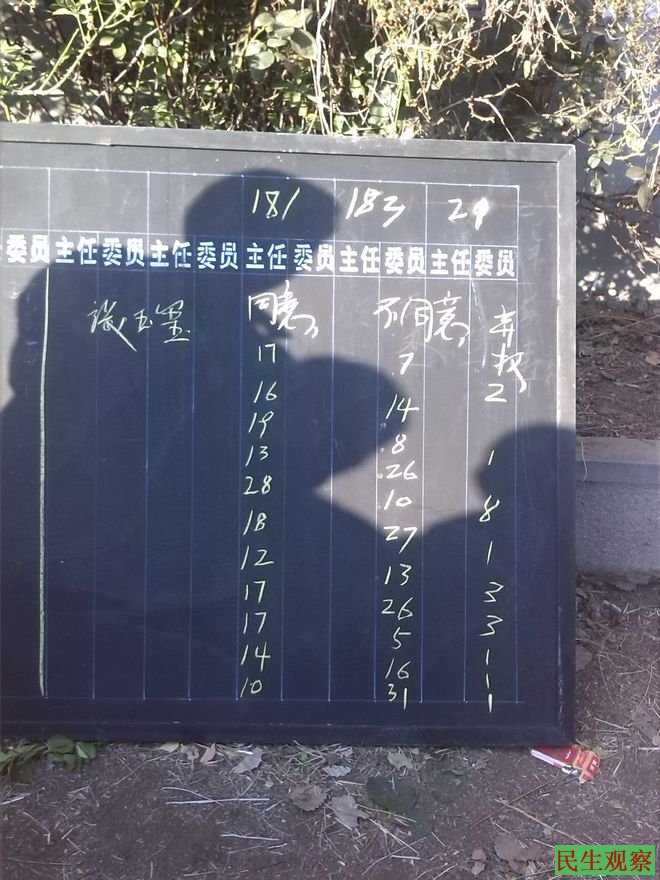 181 183 29
委员 主任 委员 主任 委员 主任 委员 主任 委员 主任 委员
同意 不同意 弃权
17 7 2
16 14
19 8 1
13 26
28 10 8
18 27 1
12 13 3
17 26 3
17 5 1
14 16 1
10 31 1
民生观察